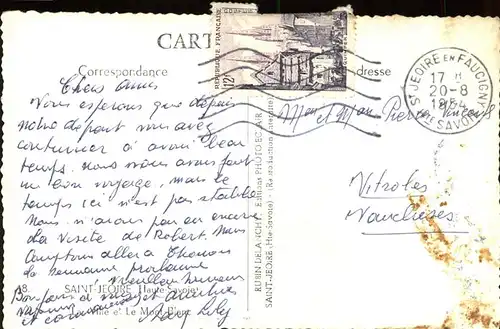 CARTE
Correspondance
dresse
RÉPUBLIQUE FRANÇAISE
12F
ST JEOIRE EN FAUCIGNY
17 H
20-8
195
HTE SAVOIE
Chers amis
Nous espérons que depuis
notre départ vous avez
continuer à avoir beau
temps. nous nous avons fait
un bon voyage, mais le
temps ici n'est pas stable
Nous n'avons pas eu encore
la visite de Robert. Nous
comptons aller à Thonon
la semaine prochaine
Bonjour
et
Lily
Mme et Mr Pierre
Vitrolles
Vaucluse
RUBIN DELANCHY Edition PHOTO ECLAIR
SAINT-JEOIRE (Hte-Savoie) - (Reproduction interdite)
18. SAINT-JEOIRE (Haute-Savoie)
et Le Mont-Blanc